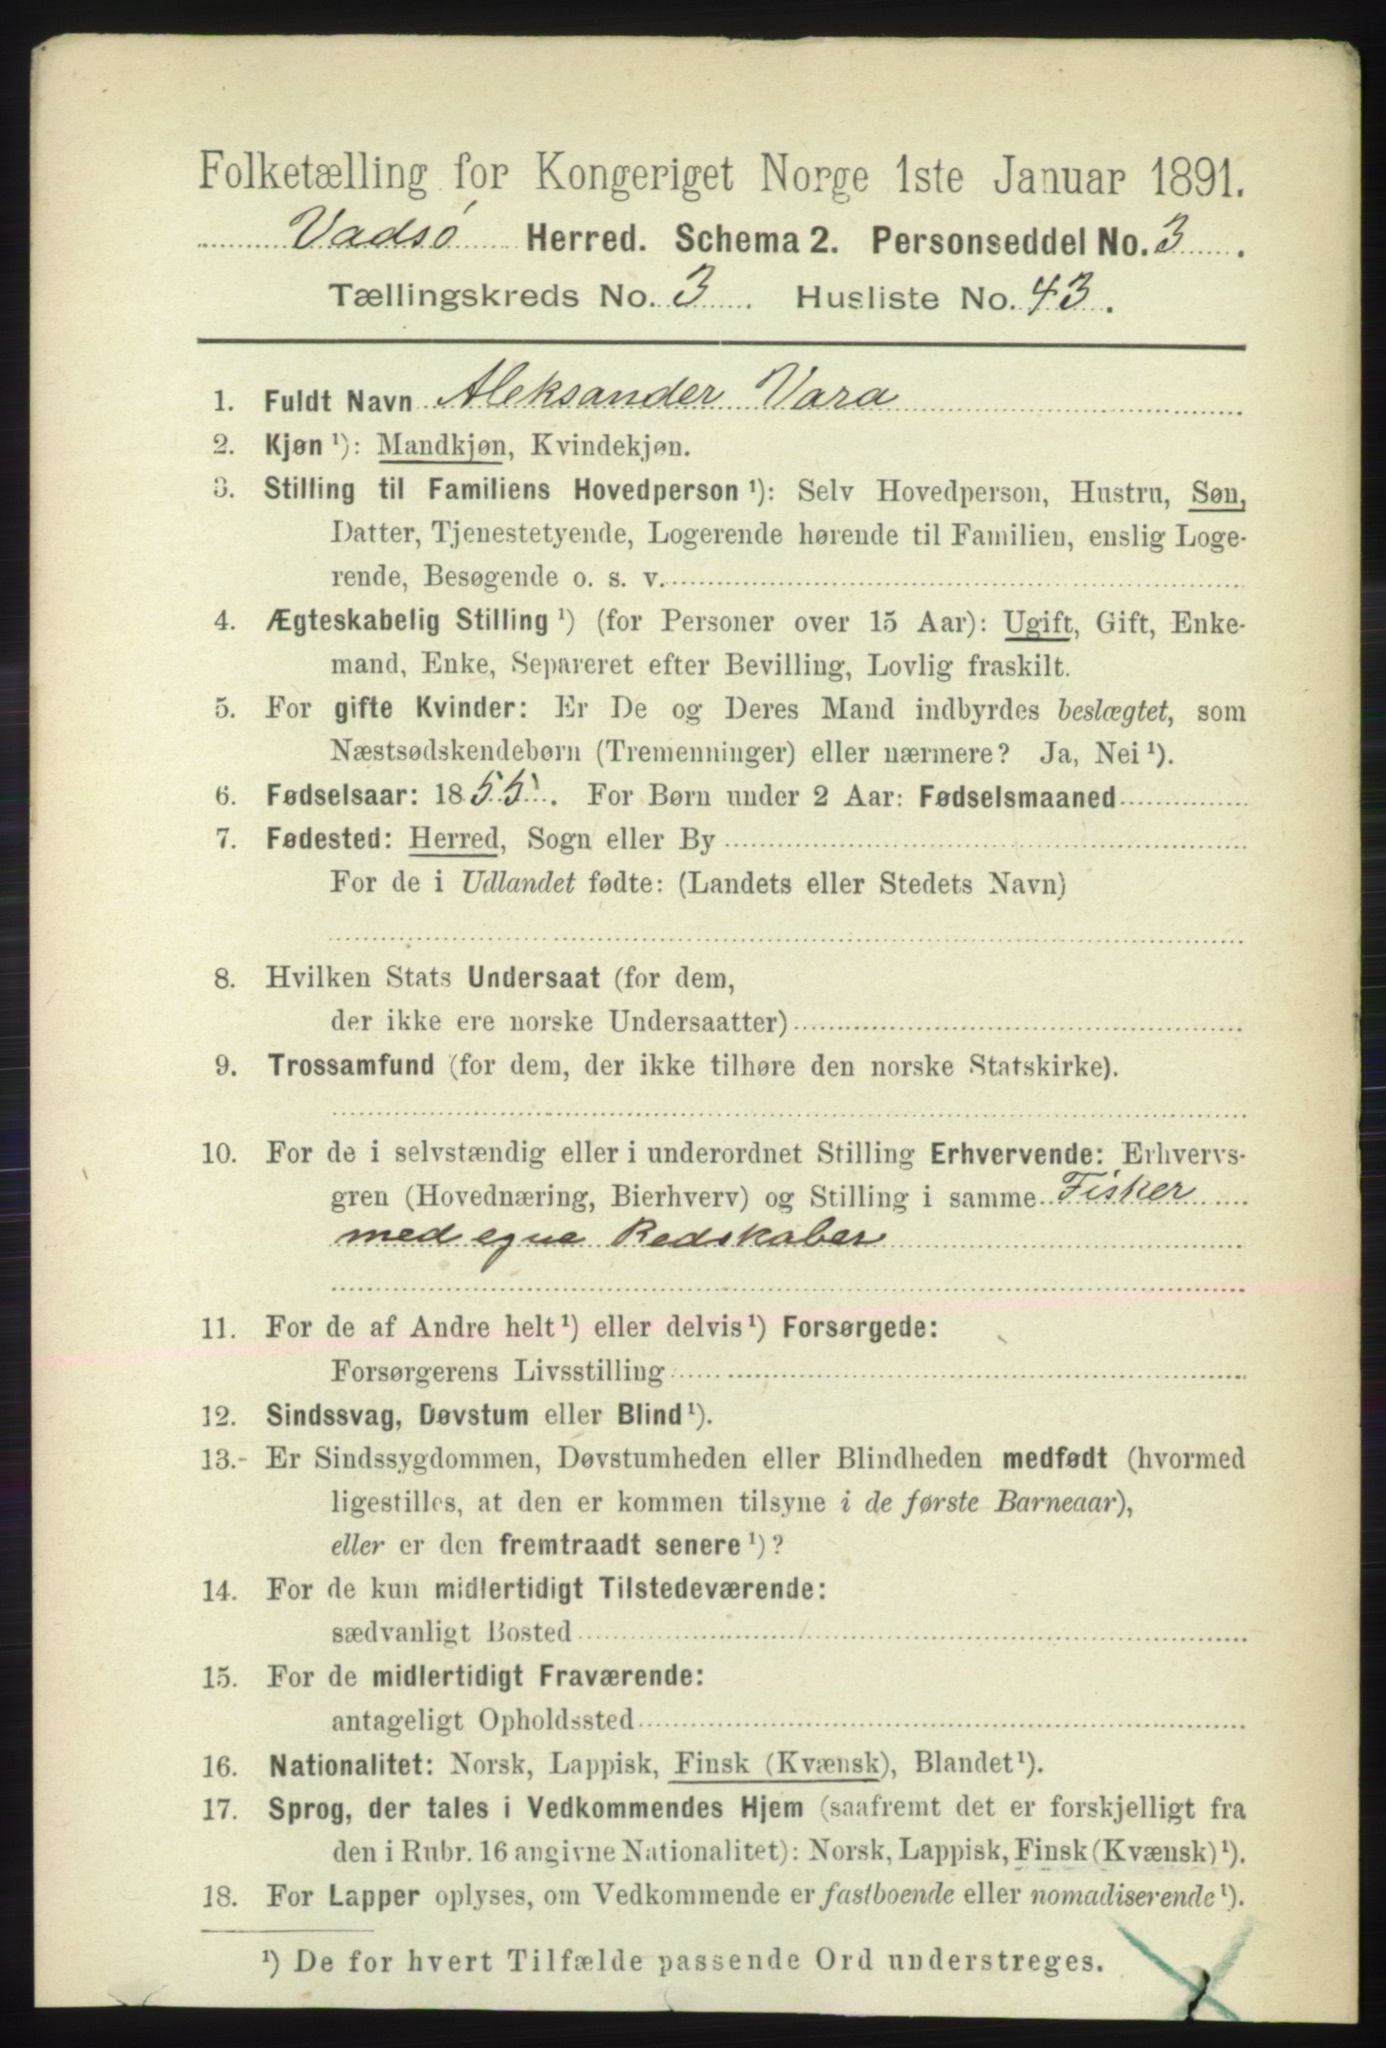 Folketælling for Kongeriget Norge 1ste Januar 1891.
Vadsø Herred. Schema 2. Personseddel No. 3.
Tællingskreds No. 3 Husliste No. 43.
1. Fuldt Navn Aleksander Vara
2. Kjøn ¹): Mandkjøn, Kvindekjøn.
3. Stilling til Familiens Hovedperson ¹): Selv Hovedperson, Hustru, Søn,
Datter, Tjenestetyende, Logerende hørende til Familien, enslig Loge-
rende, Besøgende o. s. v.
4. Ægteskabelig Stilling ¹) (for Personer over 15 Aar): Ugift, Gift, Enke-
mand, Enke, Separeret efter Bevilling, Lovlig fraskilt.
5. For gifte Kvinder: Er De og Deres Mand indbyrdes beslægtet, som
Næstsødskendebørn (Tremenninger) eller nærmere? Ja, Nei ¹).
6. Fødselsaar: 1855. For Børn under 2 Aar: Fødselsmaaned
7. Fødested: Herred, Sogn eller By
For de i Udlandet fødte: (Landets eller Stedets Navn)
8. Hvilken Stats Undersaat (for dem,
der ikke ere norske Undersaatter)
9. Trossamfund (for dem, der ikke tilhøre den norske Statskirke).
10. For de i selvstændig eller i underordnet Stilling Erhvervende: Erhvervs-
gren (Hovednæring, Bierhverv) og Stilling i samme Fisker
med egne Redskaber
11. For de af Andre helt ¹) eller delvis ¹) Forsørgede:
Forsørgerens Livsstilling
12. Sindssvag, Døvstum eller Blind ¹).
13.- Er Sindssygdommen, Døvstumheden eller Blindheden medfødt (hvormed
ligestilles, at den er kommen tilsyne i de første Barneaar),
eller er den fremtraadt senere ¹)?
14. For de kun midlertidigt Tilstedeværende:
sædvanligt Bosted
15. For de midlertidigt Fraværende:
antageligt Opholdssted
16. Nationalitet: Norsk, Lappisk, Finsk (Kvænsk), Blandet ¹).
17. Sprog, der tales i Vedkommendes Hjem (saafremt det er forskjelligt fra
den i Rubr. 16 angivne Nationalitet): Norsk, Lappisk, Finsk (Kvænsk) ¹).
18. For Lapper oplyses, om Vedkommende er fastboende eller nomadiserende ¹).
¹) De for hvert Tilfælde passende Ord understreges.